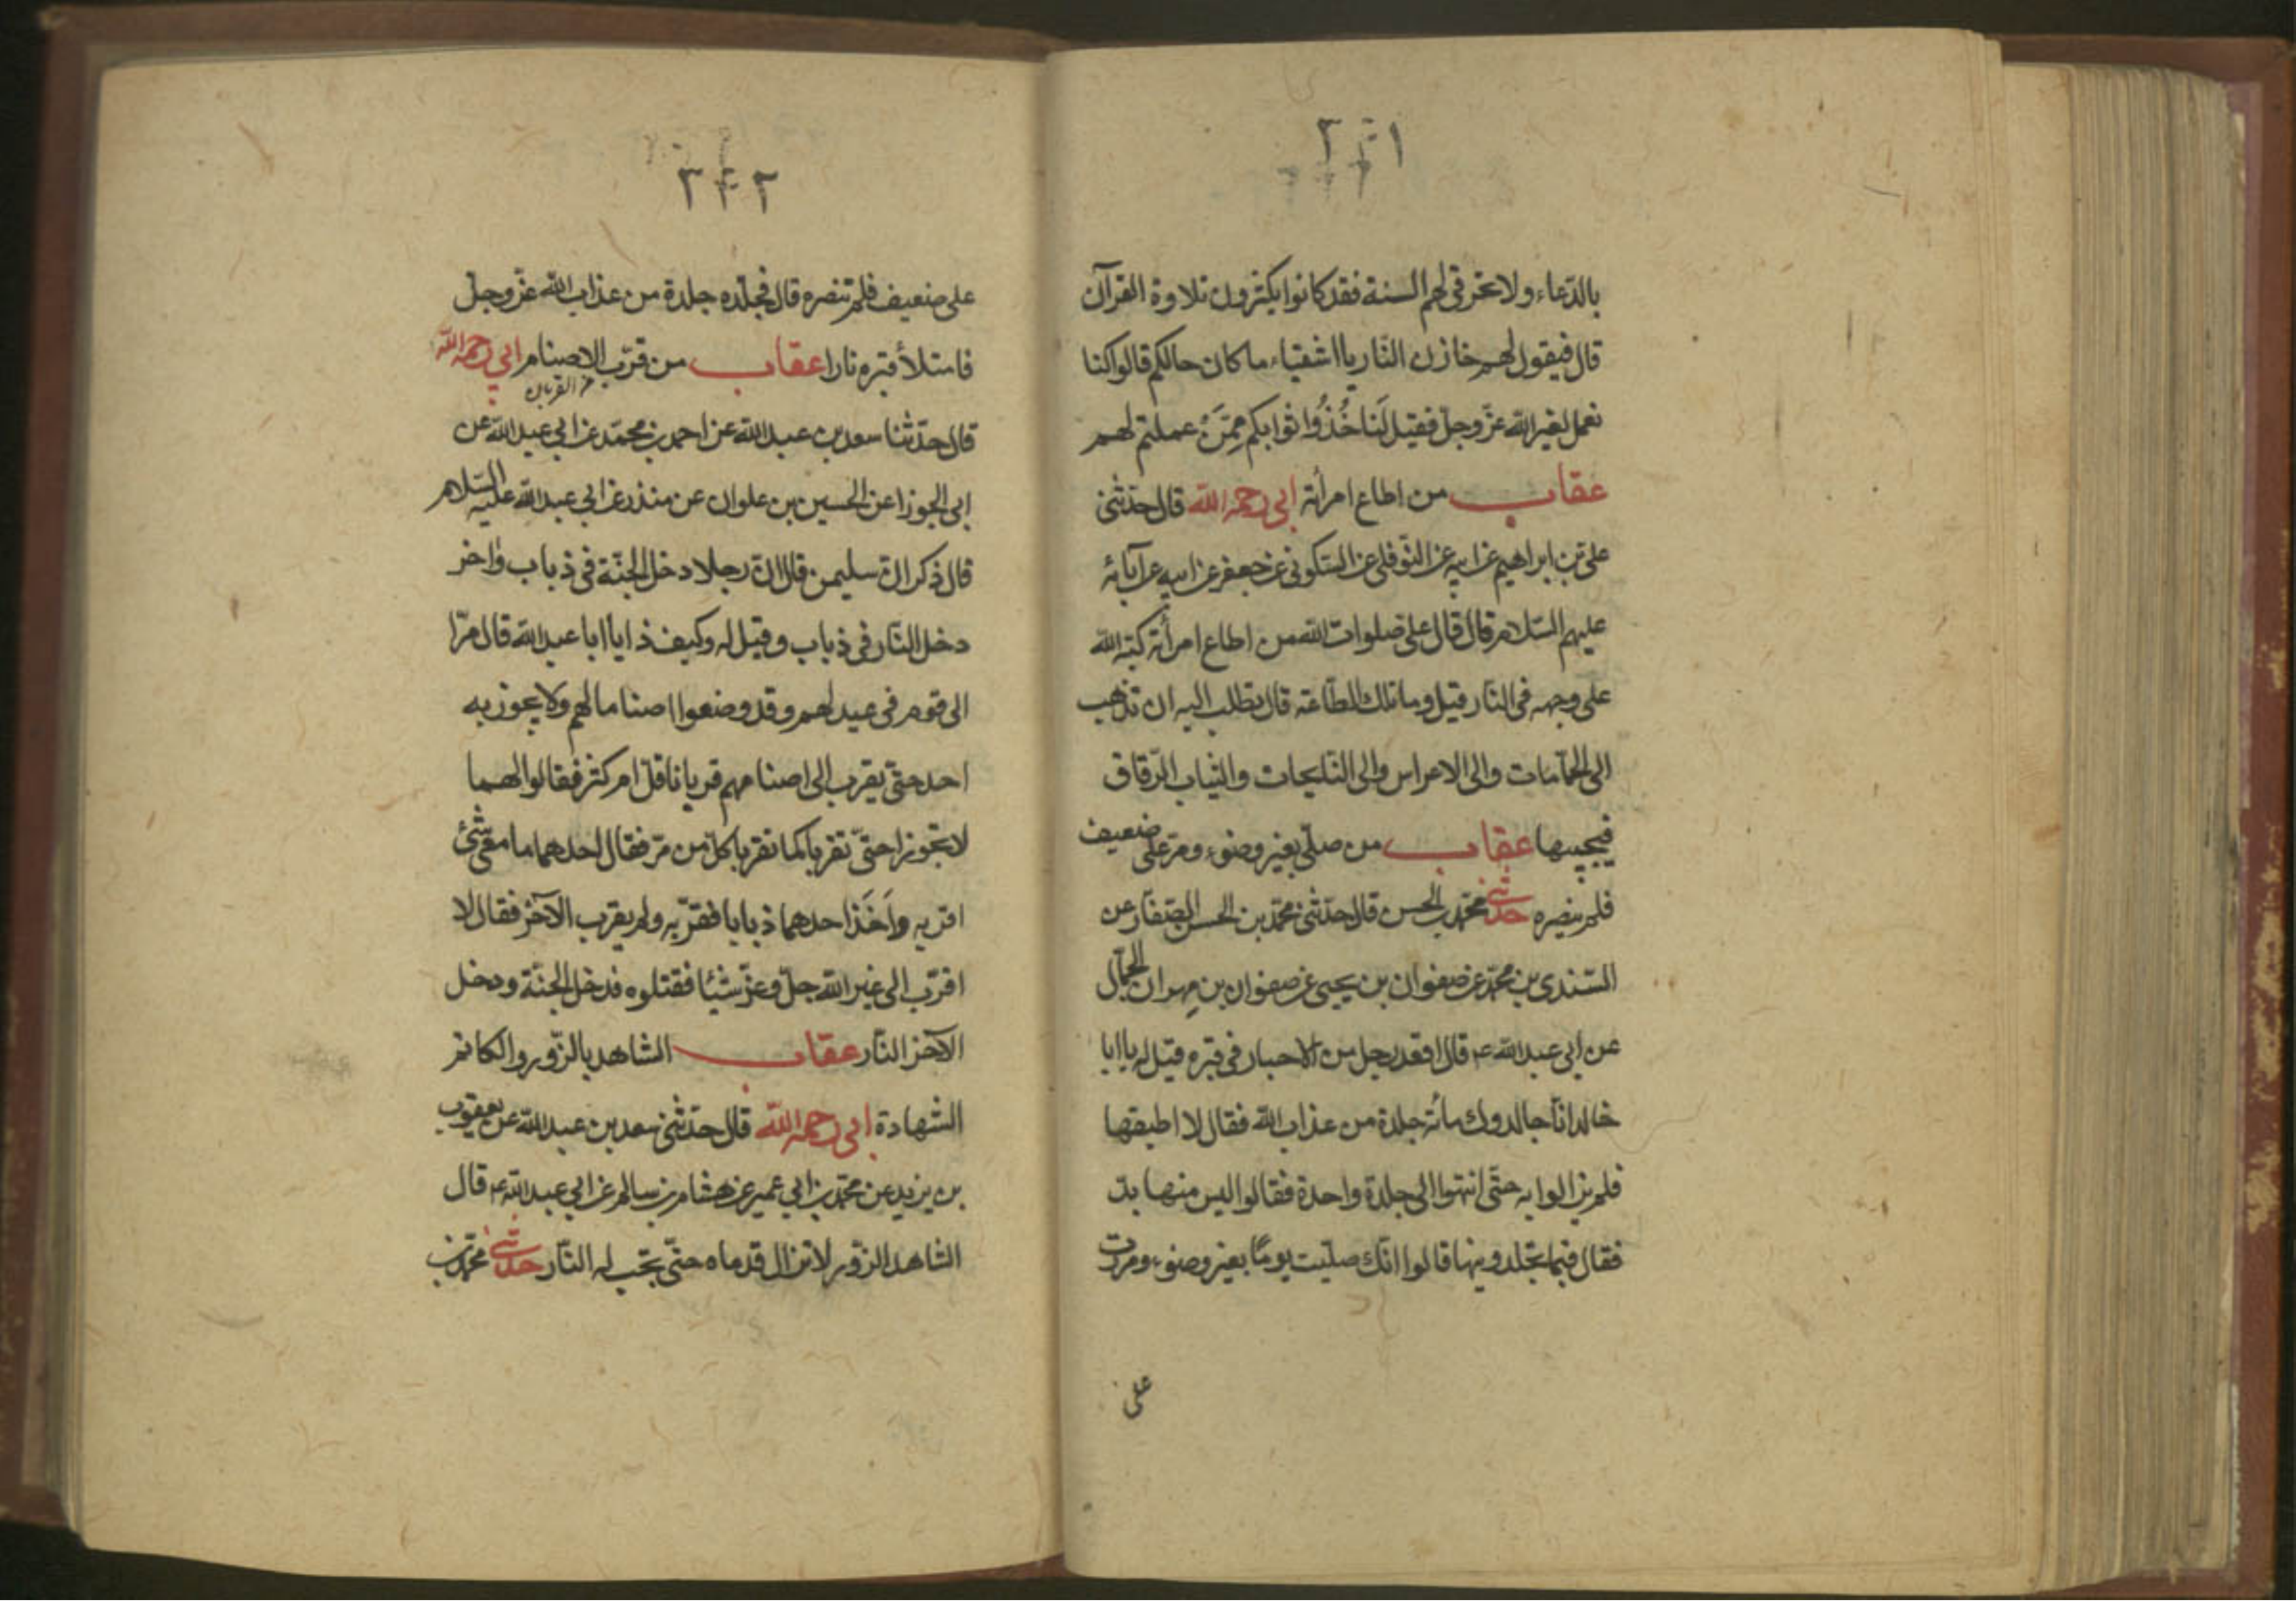 ٢٢١
بالدّعاء ولا تحرقی لهم السنة فقد كانوا يكثرون تلاوة القرآن
قال فيقول لهم خازن النّار يا اشقياء ما كان حالكم قالوا كنا
نعمل لغير الله عزّ وجلّ فقيل لَنا خُذُوا ثوابكم مِمَّنْ عملتم لهم
عقاب من اطاع امرأته ابى رحمه الله قال حدّثنى
علىّ بن ابراهيم عن ابيه عن النّوفلى عن السّكونى عن جعفر عن ابيه عن آبائه
عليهم السّلام قال قال على صلوات الله من اطاع امرأته كبّه الله
على وجهه فى النّار قيل وما تلك الطّاعة قال تطلب اليه ان تذهب
الى الحمّامات والى الاعراس والى النّايحات والثياب الرّقاق
فيجيبها عقاب من صلّى بغير وضوء ومرّ على ضعيف
فلم ينصره حدّثنى محمّد بن الحسن قال حدّثنى محمّد بن الحسن الصّفّار عن
السّندى بن محمّد عن صفوان بن يحيى عن صفوان بن مهران الجمّال
عن ابى عبد الله ع قال اقعد رجل من الاحبار فى قبره قيل له يا ابا
خالد انّا جالدوك مأئة جلدة من عذاب الله فقال لا اطيقها
فلم يزالوا به حتّى انتهوا الى جلدة واحدة فقالوا ليس منها بدّ
فقال فبما تجلدونيها قالوا انّك صلّيت يومًا بغير وضوء ومررت
على
٢٢٢
على ضعيف فلم تنصره قال فجلّده جلدة من عذاب الله عزّ وجلّ
فامتلأ قبره نارا عقاب من قرّب الاصنام ابى رحمه الله
القربان
قال حدّثنا سعد بن عبد الله عن احمد بن محمّد عن ابى عبد الله عن
ابى الجوزا عن الحسين بن علوان عن منذر عن ابى عبد الله عليه السّلام
قال ذكر انّ سليمن قال انّ رجلا دخل الجنّة فى ذباب وآخر
دخل النّار فى ذباب وقيل له وكيف ذا يا ابا عبد الله قال مرّا
الى قوم فى عيد لهم وقد وضعوا اصناما لهم ولا يجوز به
احد حتّى يقرب الى اصنامهم قربانا قلّ ام كثر فقالوا لهما
لا تجوزا حتّى تقربا كما تقربا كلّ من مرّ فقال احدهما ما معى شئ
اقربه واَخَذ احدهما ذبابا فقرّبه ولم يقرب الآخر فقال لا
اقرّب الى غير الله جلّ وعزّ شيئا فقتلوه فدخل الجنّة ودخل
الآخر النّار عقاب الشاهد بالزّور والكاتم
الشهادة ابى رحمه الله قال حدّثنى سعد بن عبد الله عن يعقوب
بن يزيد عن محمّد بن ابى عمير عن هشام بن سالم عن ابى عبد الله ع قال
الشاهد الزّور لا تزال قدماه حتّى تجب له النّار حدّثنى محمّد بن